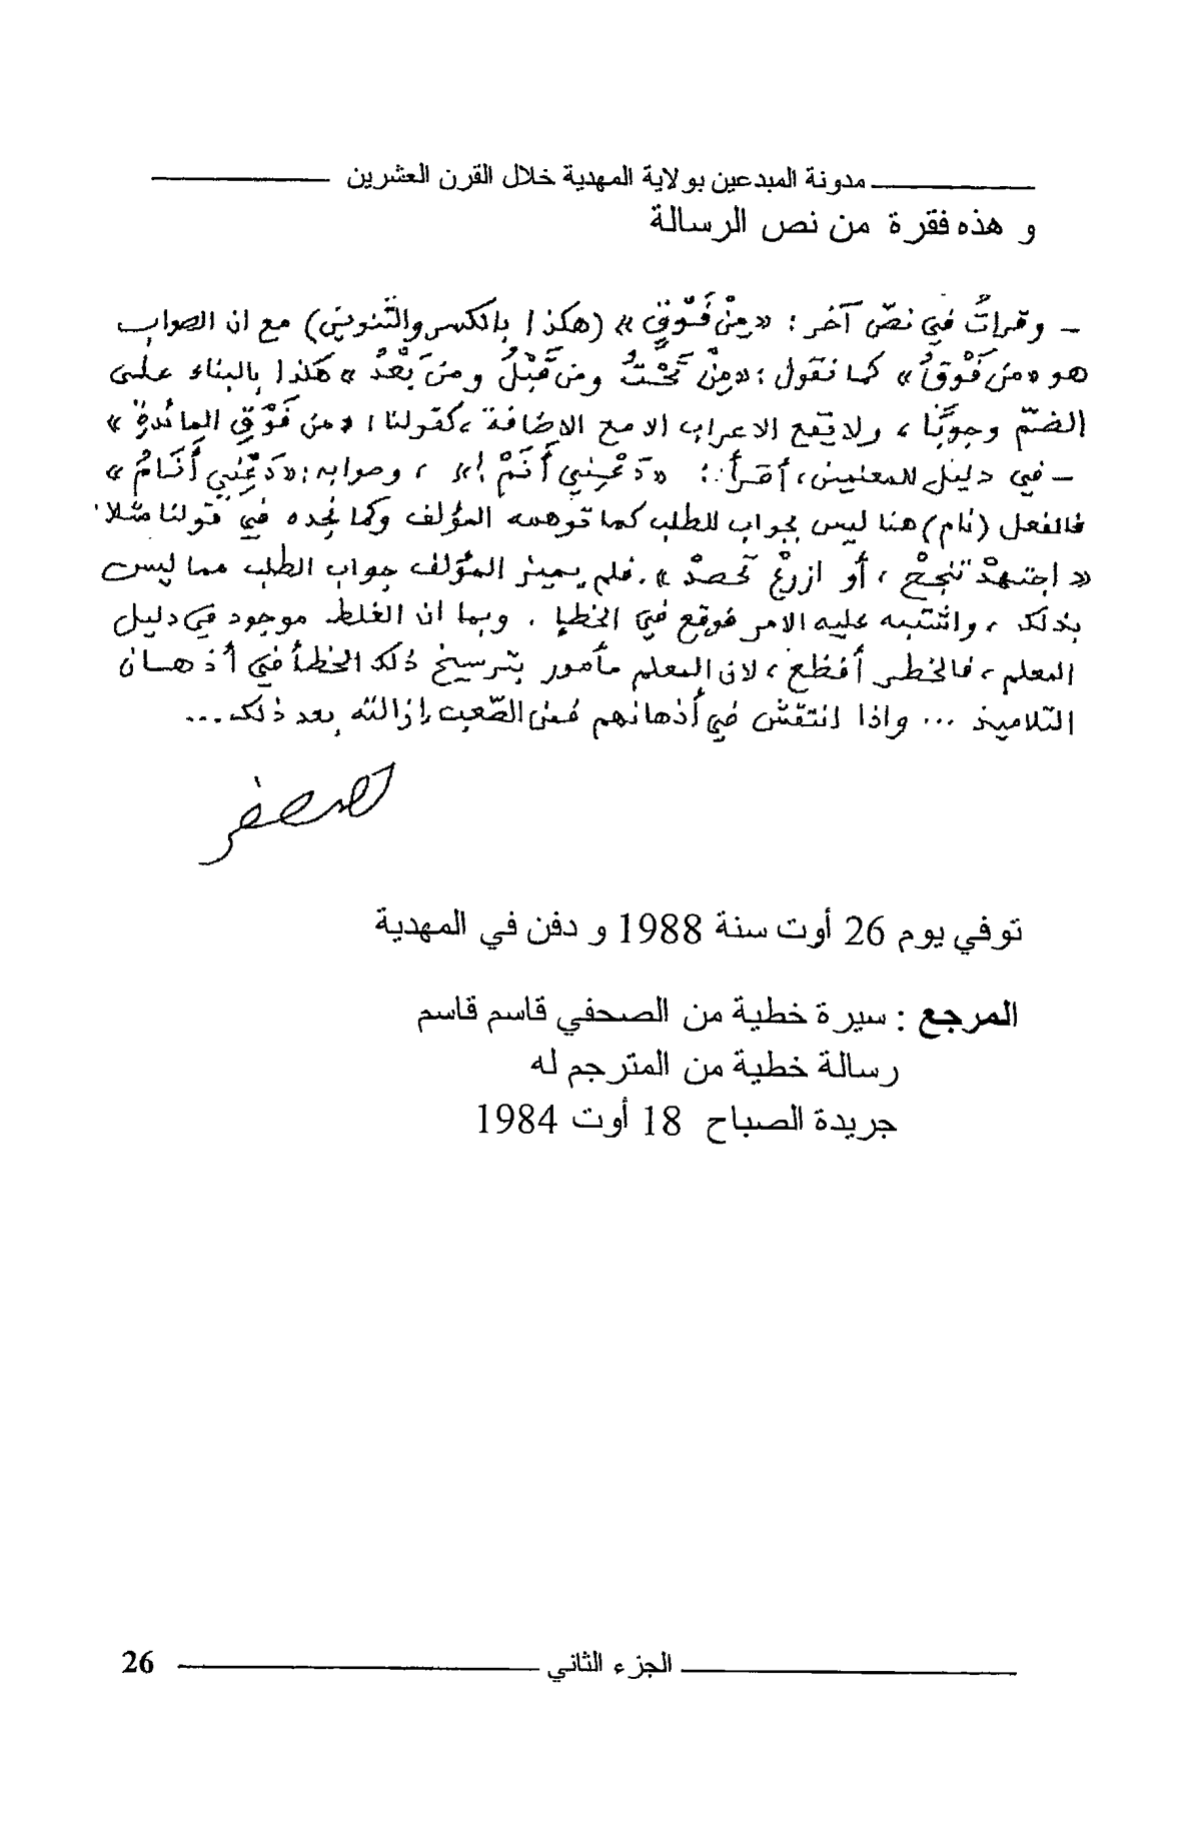 مدونة المبدعين بولاية المهدية خلال القرن العشرين
و هذه فقرة من نص الرسالة
– وقرأتُ في نصّ آخر : «مِنْ فَوْقٍ» (هكذا بالكسر والتّنوين) مع ان الصواب
هو «من فَوْقُ» كما نقول : «مِنْ تَحْتُ ومن قَبْلُ ومنَ بَعْدُ» هكذا بالبناء على
الضمّ وجوبًا ، ولا يقع الاعراب الا مع الاضافة ، كقولنا : «من فَوْقِ المائدةِ»
– في دليل للمعلمين ، أقرأ : «دَعْنِي أَنَمْ !» ، وصوابه : «دَعْنِي أَنَامُ»
فالفعل (نام) هنا ليس بجواب للطلب كما توهمه المؤلف وكما نجده في قولنا مثلا
« اجتهدْ تنجحْ ، أو ازرعْ تحصدْ » . فلم يميز المؤلف جواب الطلب مما ليس
بذلك ، واشتبه عليه الامر فوقع في الخطإ . وبما ان الغلط موجود في دليل
المعلم ، فالخطر أفظع ، لان المعلم مأمور بترسيخ ذلك الخطأ في أذهان
التلاميذ ... واذا انتقش في أذهانهم فمن الصّعب إزالته بعد ذلك ...
توفي يوم 26 أوت سنة 1988 و دفن في المهدية
المرجع : سيرة خطية من الصحفي قاسم قاسم
رسالة خطية من المترجم له
جريدة الصباح 18 أوت 1984
الجزء الثاني 26